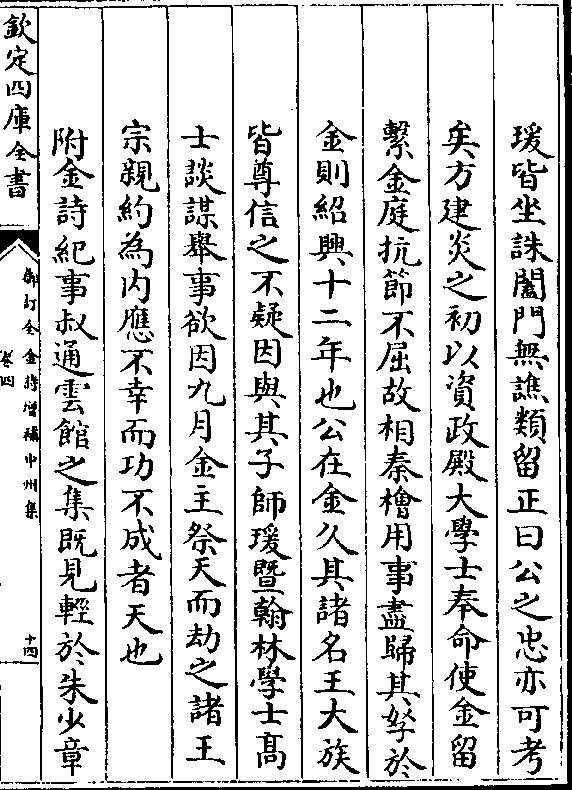 瑗皆坐誅闔門無譙類留正曰公之忠亦可考
矣方建炎之初以資政殿大學士奉命使金留
繫金庭抗節不屈故相秦檜用事盡歸其孥於
金則紹興十二年也公在金久其諸名王大族
皆尊信之不疑因與其子師瑗暨翰林學士高
士談謀舉事欲因九月金主祭天而劫之諸王
宗親約為内應不幸而功不成者天也
附金詩紀事叔通雲館之集既見輕於朱少章
欽定四庫全書
御訂全金詩增補中州集
卷四
十四